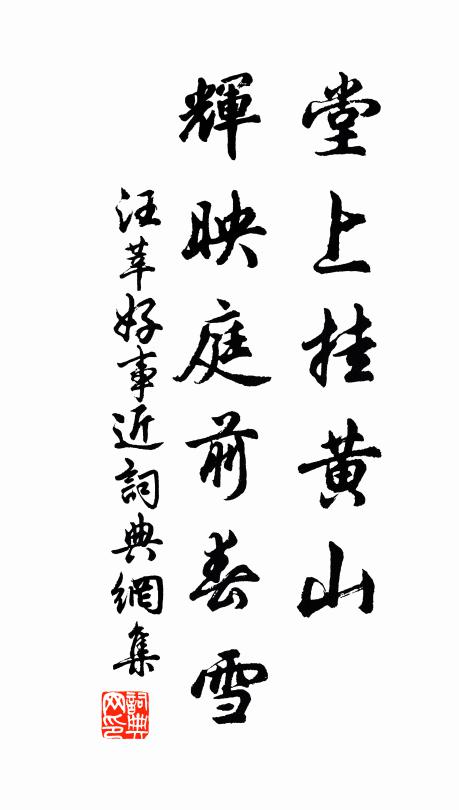 堂上挂黄山
輝映庭前春雪
汪莘好事近詞典網集
詞典網印